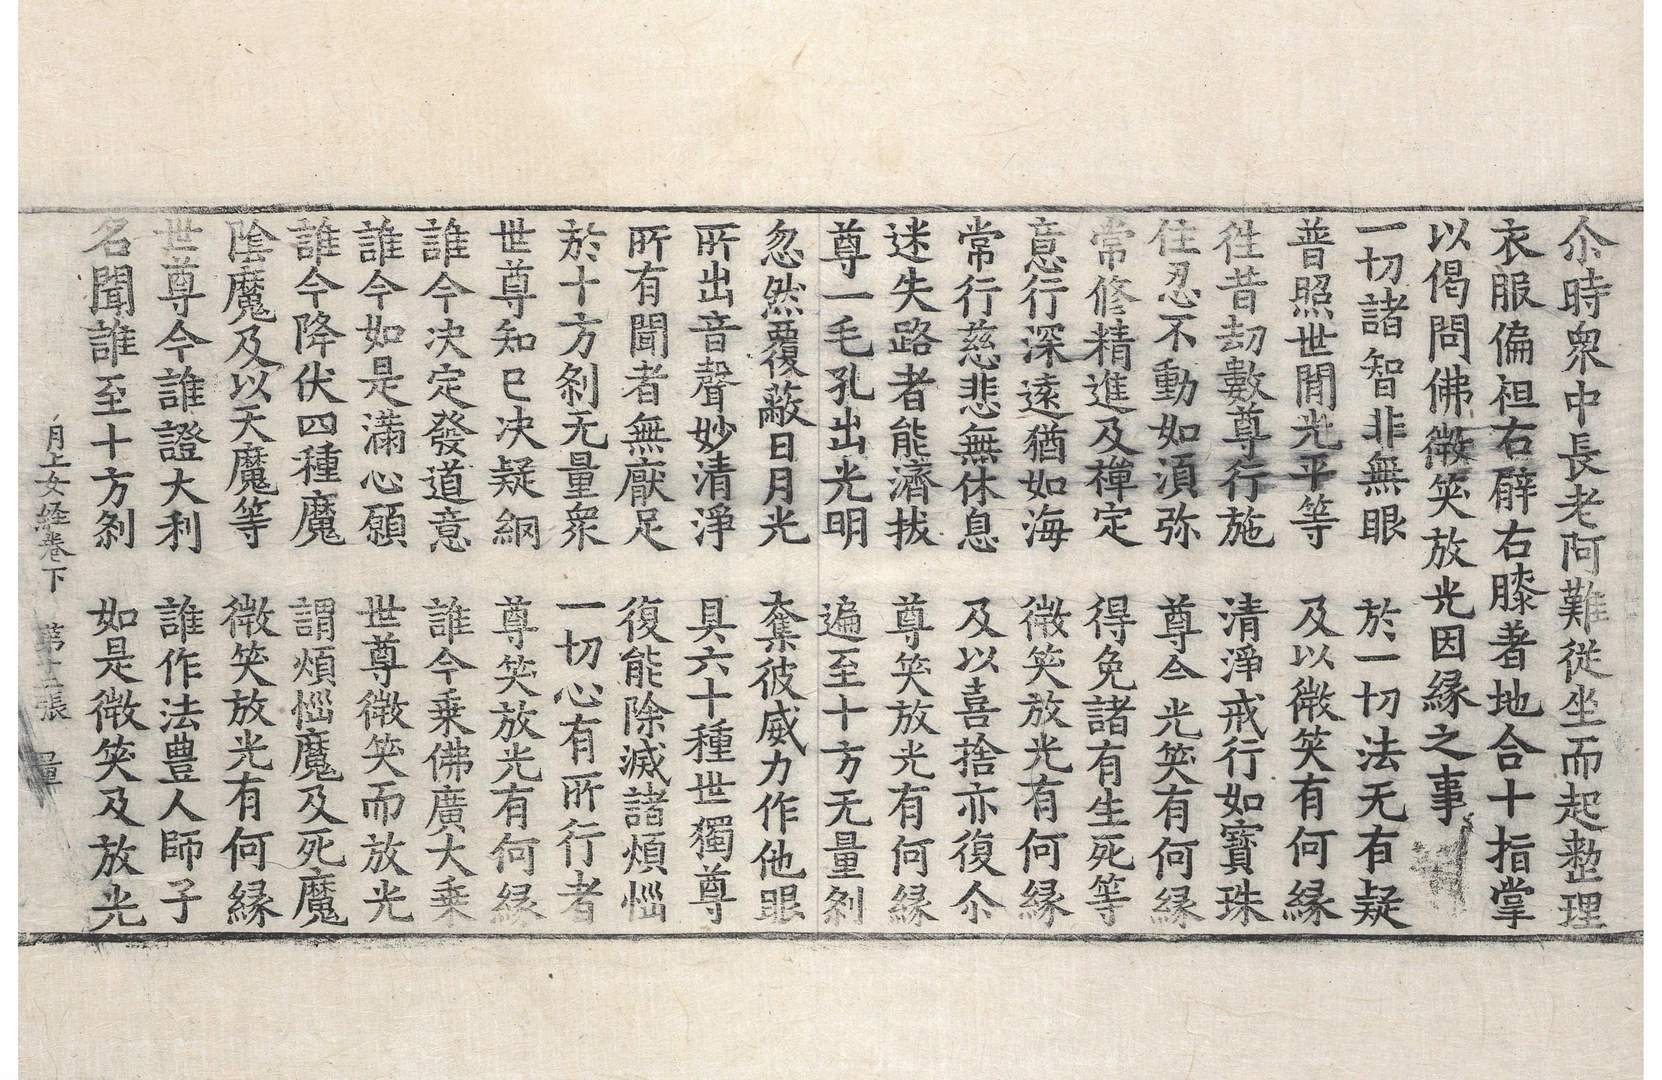 尒時衆中長老阿難從坐而起整理
衣服偏袒右臂右膝著地合十指掌
以偈問佛微笑放光因縁之事
一切諸智非無眼　於一切法无有疑
普照世閒光平等　及以微笑有何縁
徃昔劫數尊行施　清淨戒行如寶珠
住忍不動如湏弥　尊今光笑有何縁
常修精進及禪定　得免諸有生死等
意行深遠猶如海　微笑放光有何縁
常行慈悲無休息　及以喜捨亦復尒
迷失路者能濟拔　尊笑放光有何縁
尊一毛孔出光明　遍至十方无量剎
忽然覆蔽日月光　奪彼威力作他眼
所出音聲妙清淨　具六十種世獨尊
所有聞者無厭足　復能除滅諸煩惱
於十方剎无量衆　一切心有所行者
世尊知已决疑網　尊笑放光有何縁
誰今决定發道意　誰今乗佛廣大乗
誰今如是滿心願　世尊微笑而放光
誰今降伏四種魔　謂煩惱魔及死魔
陰魔及以天魔等　微笑放光有何縁
世尊今誰證大利　誰作法豊人師子
名聞誰至十方剎　如是微笑及放光
月上女経卷下　第十二張